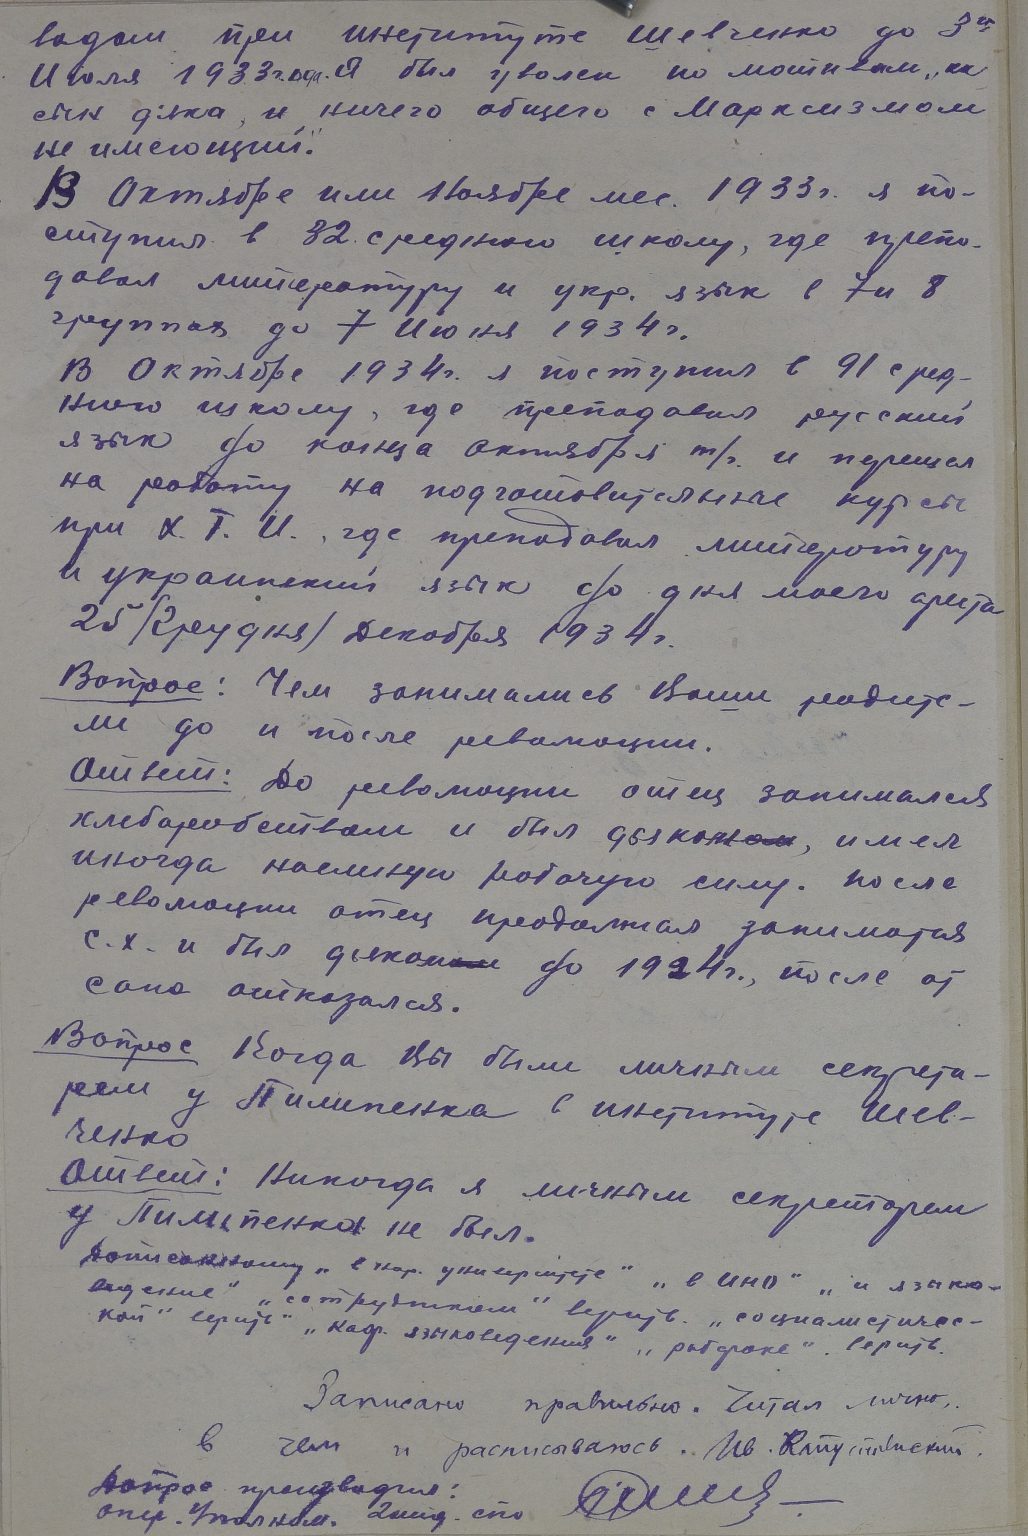 водом при институте Шевченко до 3го
Июля 1933 года. Я был уволен по мотивам „как
сын дяка, и ничего общего с Марксизмом
не имеющий."
В Октябре или Ноябре мес. 1933 г. я по-
ступил в 32 среднюю школу, где препо-
давал литературу и укр. язык в 7 и 8
группах до 7 Июня 1934 г.
В Октябре 1934 г. я поступил в 91 сред-
нюю школу, где преподавал русский
язык до конца октября т/г. и перешел
на работу на подготовительные курсы
при Х. Т. И., где преподавал литературу
и украинский язык до дня моего ареста
25 /Грудня/ Декабря 1934 г.
Вопрос: Чем занимались Ваши родите-
ли до и после революции.
Ответ: До революции отец занимался
хлебаробством и был дьяком, имел
иногда наемную рабочую силу. После
революции отец продолжал заниматся
с.х. и был дьяком до 1924 г., после от
сана отказался.
Вопрос Когда Вы были личным секрета-
рем у Пилипенка в институте Шев-
ченко
Ответ: Никогда я личным секретарем
у Пилипенка не был.
Дописанному „в нар. университете" „в ИНО" „и языко-
ведение" „сотрудником" верить. „социалистичес-
кой" верить" „каф. языковедения" „рабфаке". верить.
Записано правильно. Читал лично,
в чем и расписываюсь. Ив. Капустянский.
Допрос производил:
Опер. Уполном. 2 отд. спо